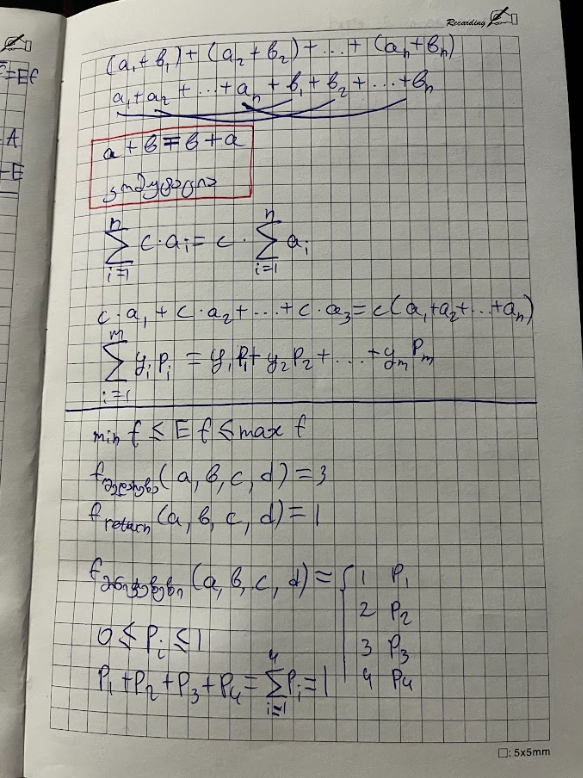 Recording
(a₁+b₁)+(a₂+b₂)+...+(aₙ+bₙ)
a₁+a₂+...+aₙ+b₁+b₂+...+bₙ
a+b=b+a
=Ef
A
-E
∑ⁿᵢ₌₁ c·aᵢ = c·∑ⁿᵢ₌₁ aᵢ
c·a₁+c·a₂+...+c·a₃=c(a₁+a₂+...+aₙ)
∑ᵐᵢ₌₁ yᵢpᵢ = y₁p₁+y₂p₂+...+yₘpₘ
min f ≤ E f ≤ max f
f (a, b, c, d) = 3
f return (a, b, c, d) = 1
f (a, b, c, d) = { 1 P₁
2 P₂
0 ≤ Pᵢ ≤ 1
3 P₃
4 P₄
P₁+P₂+P₃+P₄ = ∑⁴ᵢ₌₁ Pᵢ = 1
□: 5x5mm